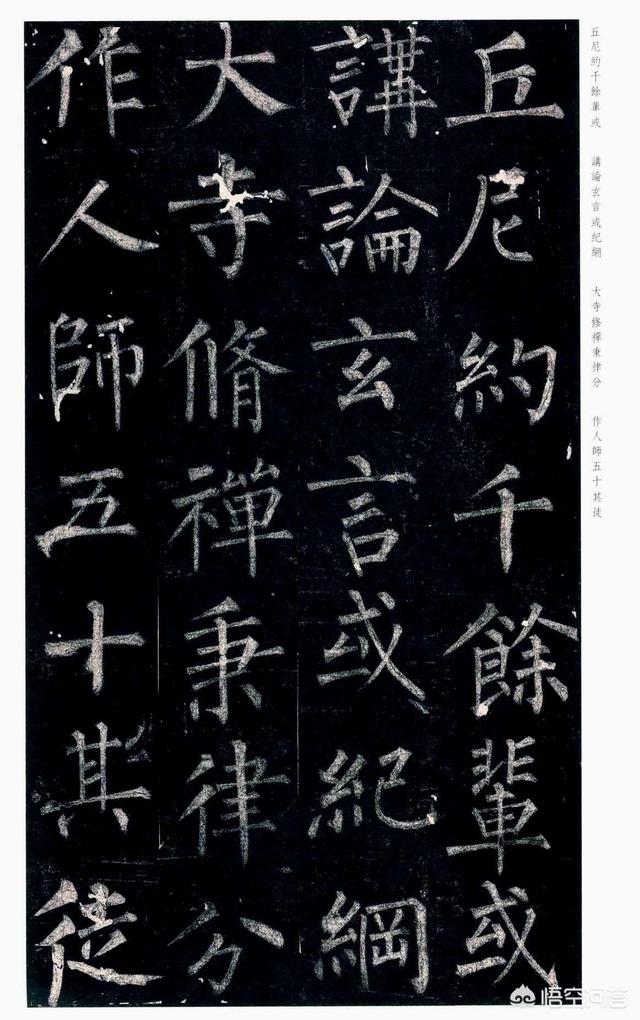 丘尼約千餘輩或
講論玄言或紀綱
大寺脩禪秉律分
作人師五十其徒
丘尼約千餘輩或　講論玄言或紀綱　大寺修禪秉律分　作人師五十其徒
悟空问答